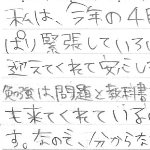 私は、今年の4月
ぱり緊張している
迎えてくれて安心し
勉強は問題と教科書
も来てくれている
す。なので、分からな